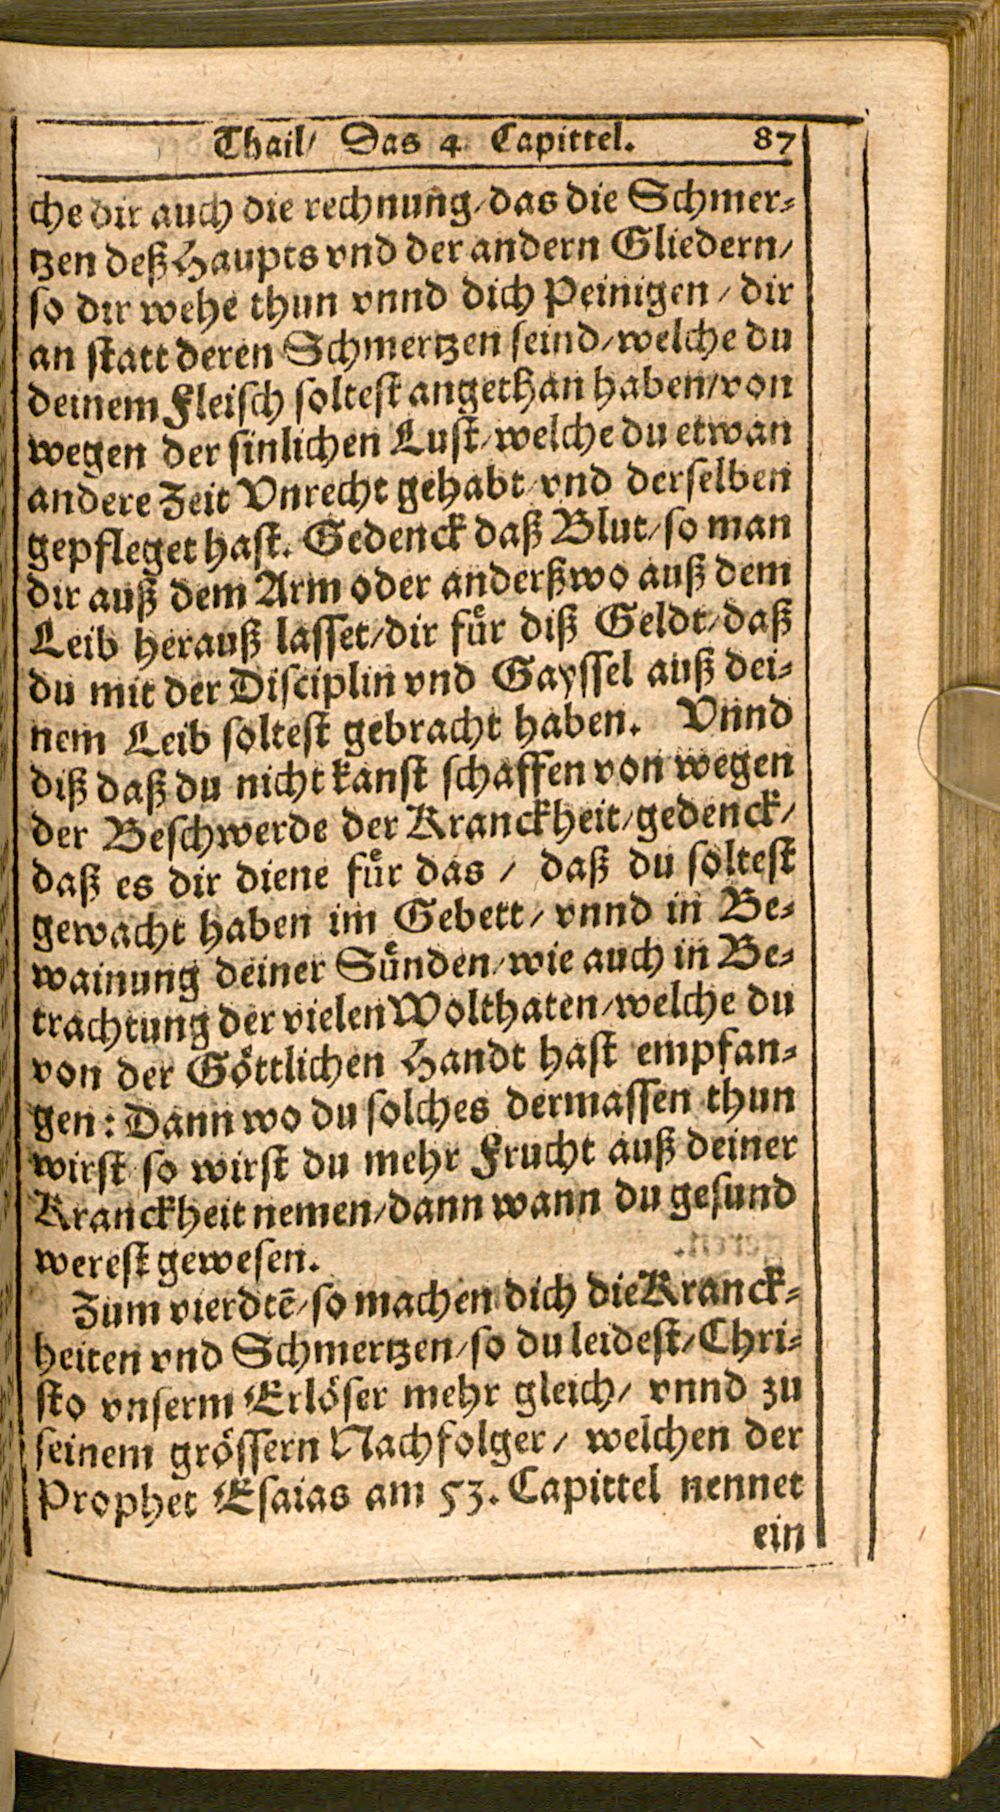 Thail/ Das 4 Capittel. 87
che dir auch die rechnung/das die Schmer⸗
tzen deß Haupts vnd der andern Gliedern/
so dir wehe thun vnnd dich Peinigen / dir
an statt deren Schmertzen seind/welche du
deinem Fleisch soltest angethan haben/von
wegen der sinlichen Lust/welche du etwan
andere Zeit Vnrecht gehabt/vnd derselben
gepfleget hast. Gedenck daß Blut/so man
dir auß dem Arm oder anderßwo auß dem
Leib herauß lasset/dir fuͤr diß Geldt/daß
du mit der Disciplin vnd Gayssel auß dei⸗
nem Leib soltest gebracht haben. Vnnd
diß daß du nicht kanst schaffen von wegen
der Beschwerde der Kranckheit/gedenck/
daß es dir diene fuͤr das / daß du soltest
gewacht haben im Gebett/ vnnd in Be⸗
wainung deiner Suͤnden/wie auch in Be⸗
trachtung der vielen Wolthaten/welche du
von der Göttlichen Handt hast empfan⸗
gen: Dann wo du solches dermassen thun
wirst so wirst du mehr Frucht auß deiner
Kranckheit nemen/dann wann du gesund
werest gewesen.
Zum vierdtẽ/so machen dich die Kranck⸗
heiten vnd Schmertzen/so du leidest/Chri⸗
sto vnserm Erlöser mehr gleich/ vnnd zu
seinem grössern Nachfolger/ welchen der
Prophet Esaias am 53. Capittel nennet
ein